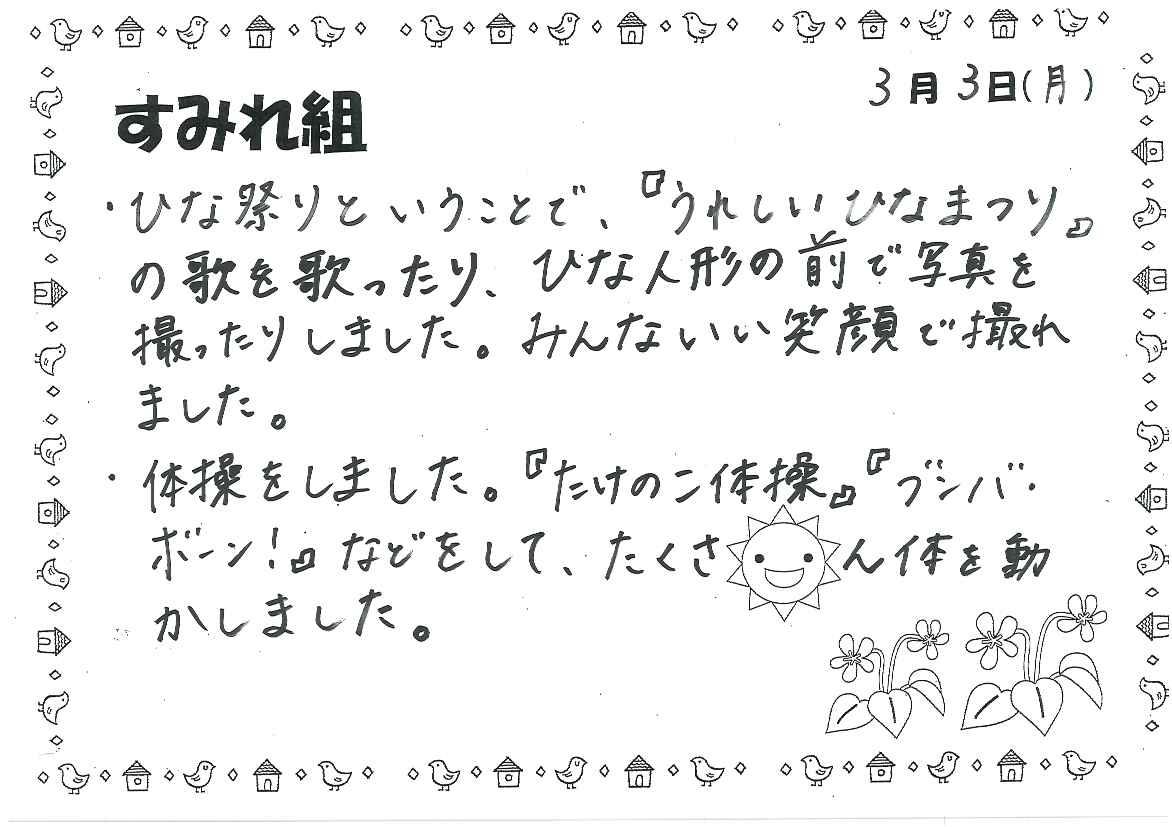 3月3日(月)
すみれ組
・ひな祭りということで、『うれしいひなまつり』
の歌を歌ったり、ひな人形の前で写真を
撮ったりしました。みんないい笑顔で撮れ
ました。
・体操をしました。『たけのこ体操』『ブンバ・
ボーン!』などをして、たくさん体を動
かしました。